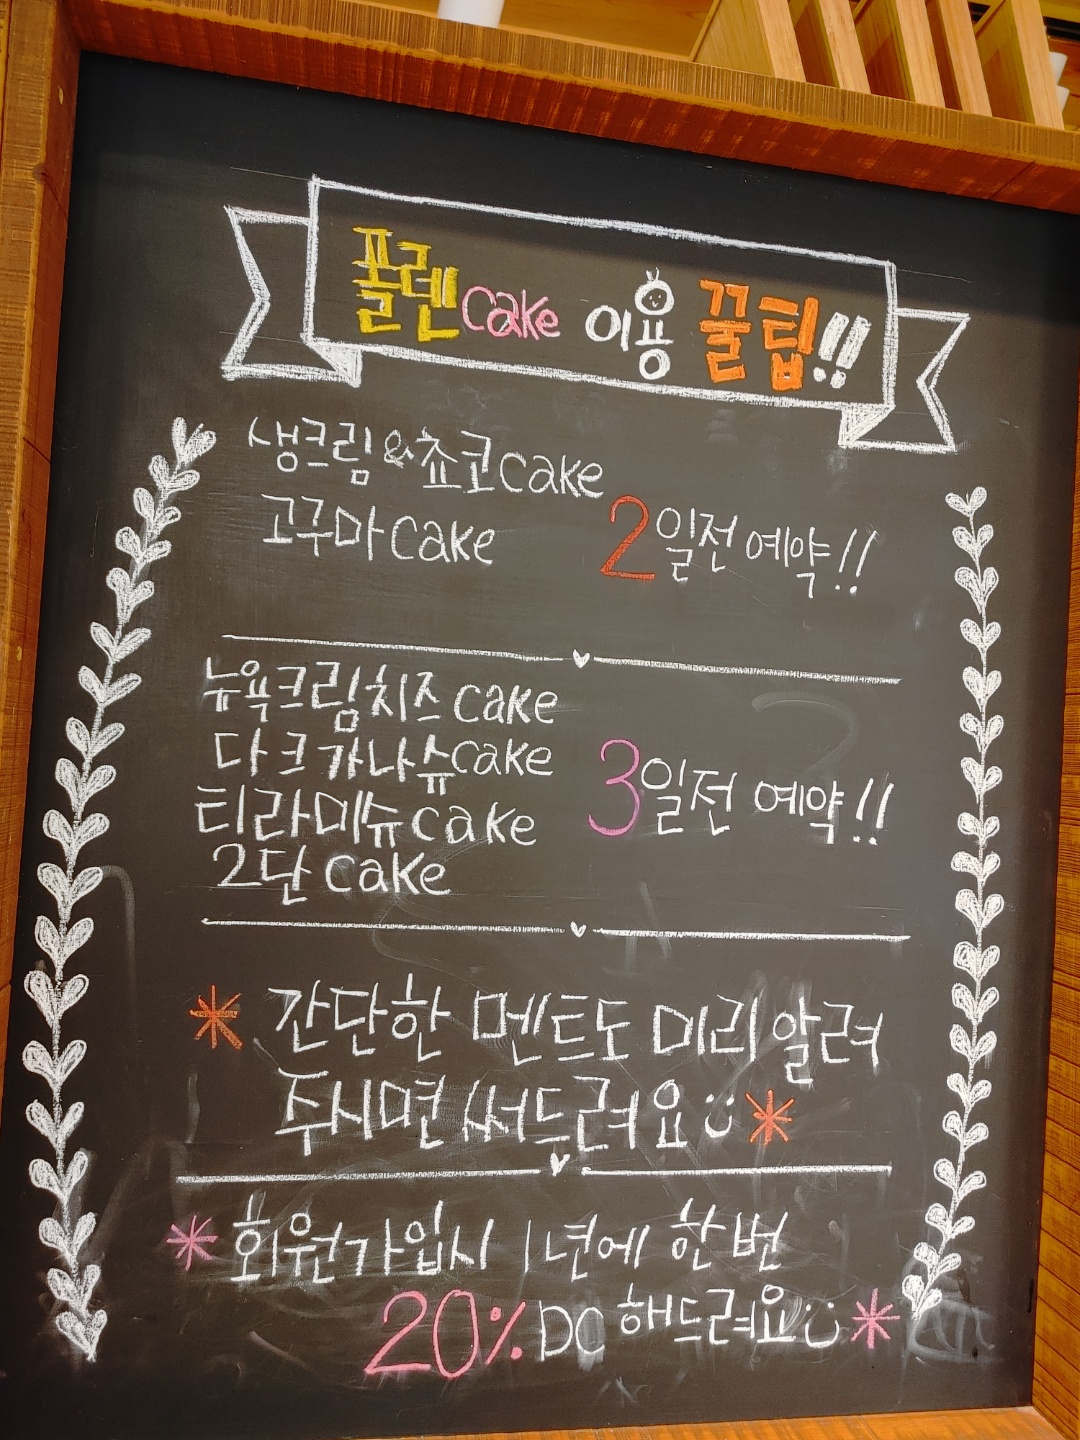 폴렌cake 이용 꿀팁!!
생크림&쵸코cake
고구마cake
2일전 예약!!
뉴욕크림치즈 cake
다크가나슈cake
티라미슈cake
2단 cake
3일전 예약!!
* 간단한 멘트도 미리 알려
주시면 써드려요 *
* 회원가입시 1년에 한번
20% DC 해드려요 *